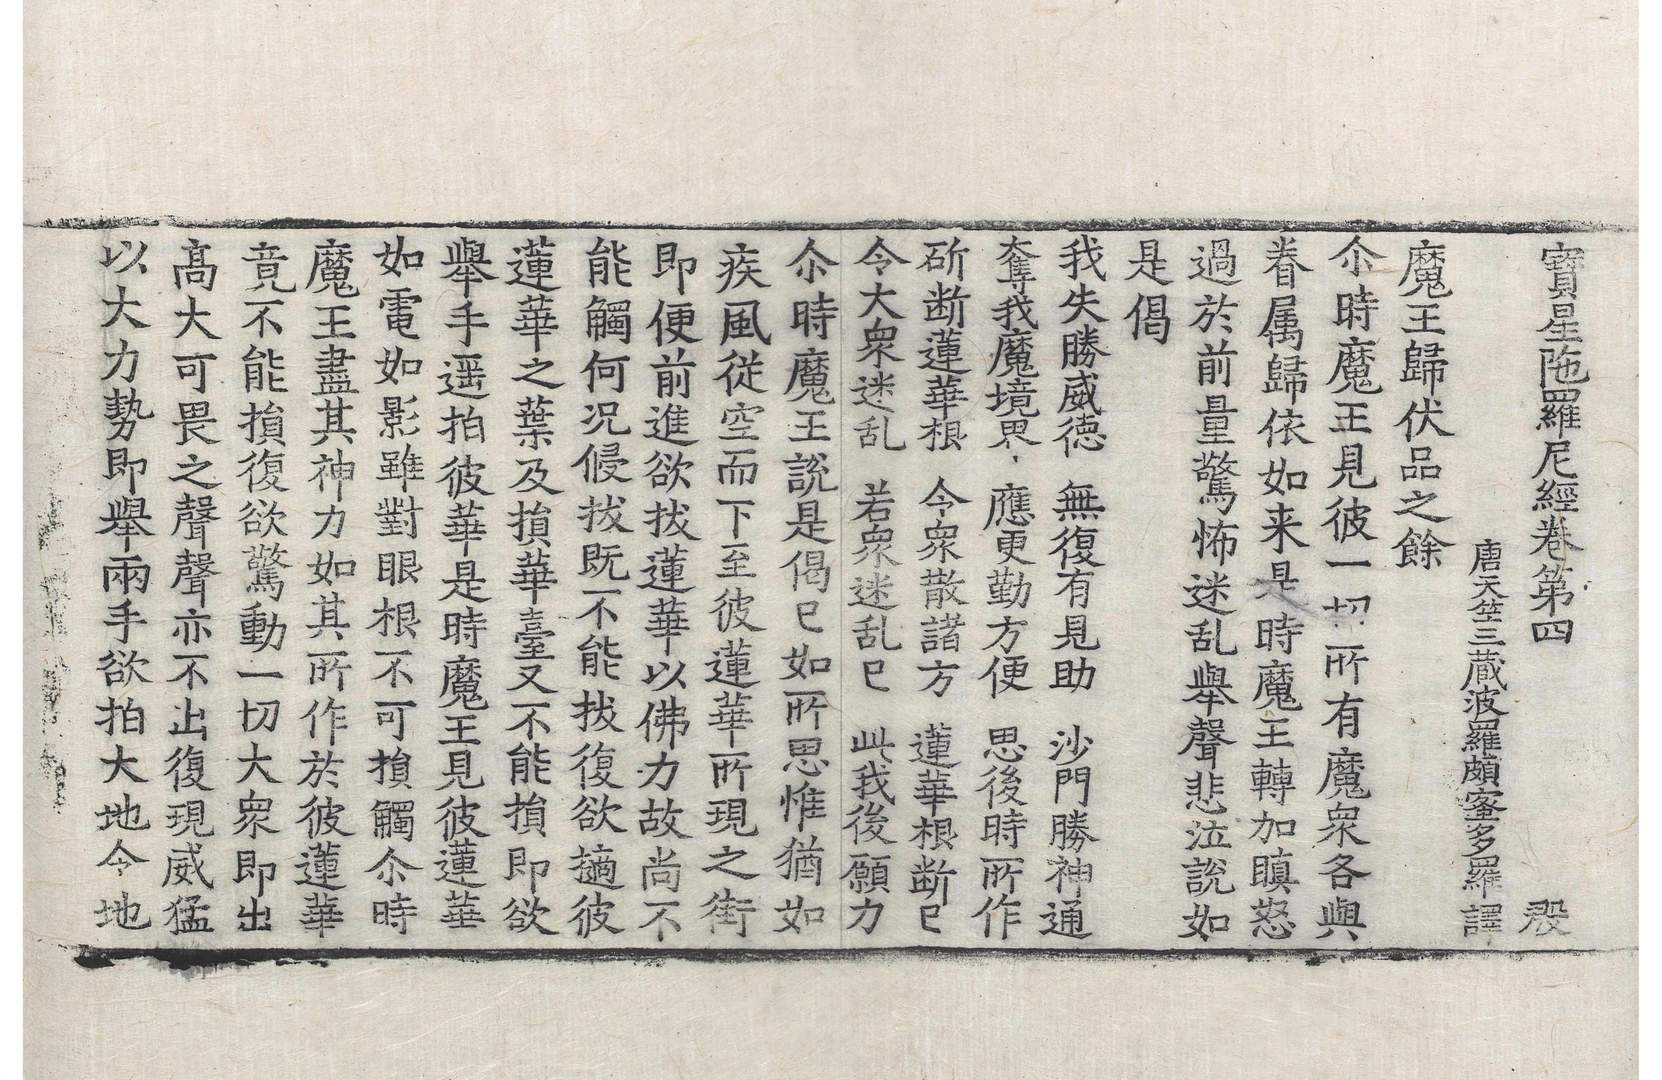 寶星陁羅尼經卷第四 殷
唐天竺三藏波羅頗蜜多羅譯
魔王歸伏品之餘
尒時魔王見彼一切所有魔衆各與
眷属歸依如来是時魔王轉加瞋怒
過於前量驚怖迷乱舉聲悲泣說如
是偈
我失勝威德 無復有見助 沙門勝神通
奪我魔境界 應更勤方便 思後時所作
斫断蓮華根 令衆散諸方 蓮華根断已
令大衆迷乱 若衆迷乱已 此我後願力
尒時魔王說是偈已如所思惟猶如
疾風從空而下至彼蓮華所現之街
即便前進欲拔蓮華以佛力故尚不
能觸何况侵拔既不能拔復欲擿彼
蓮華之葉及損華臺又不能損即欲
舉手遥拍彼華是時魔王見彼蓮華
如電如影雖對眼根不可損觸尒時
魔王盡其神力如其所作於彼蓮華
竟不能損復欲驚動一切大衆即出
高大可畏之聲聲亦不出復現威猛
以大力勢即舉兩手欲拍大地令地